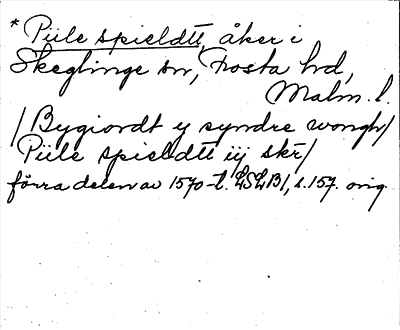 * Piile spieldtt, åker i
Skeglinge sn, Frosta hd,
Malm. l.
/Bygiordt y syndre wongh/
Piile spieldtt iij skr/
förra delen av 1570-t. LSLB1, s. 157. orig.